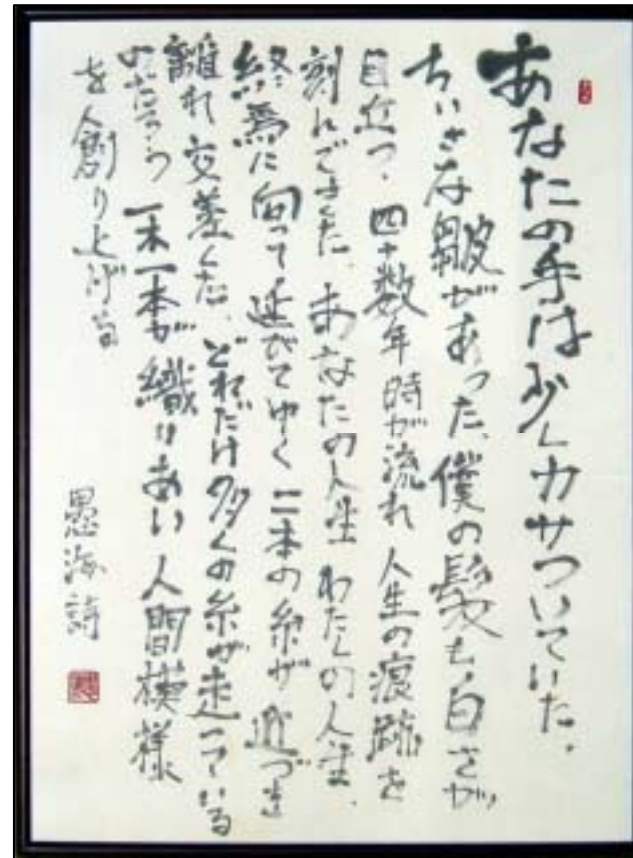 あなたの手は少しカサついていた、
ちいさな皺があった、僕の髪も白さが
目立つ、四十数年時が流れ人生の痕跡を
刻んできた、あなたの人生わたしの人生、
終焉に向って延びてゆく二本の糸が近づき
離れ交差した、どれだけ多くの糸が走っている
のだろう一本一本が織りあい人間模様
を創り上げる
愚海詩